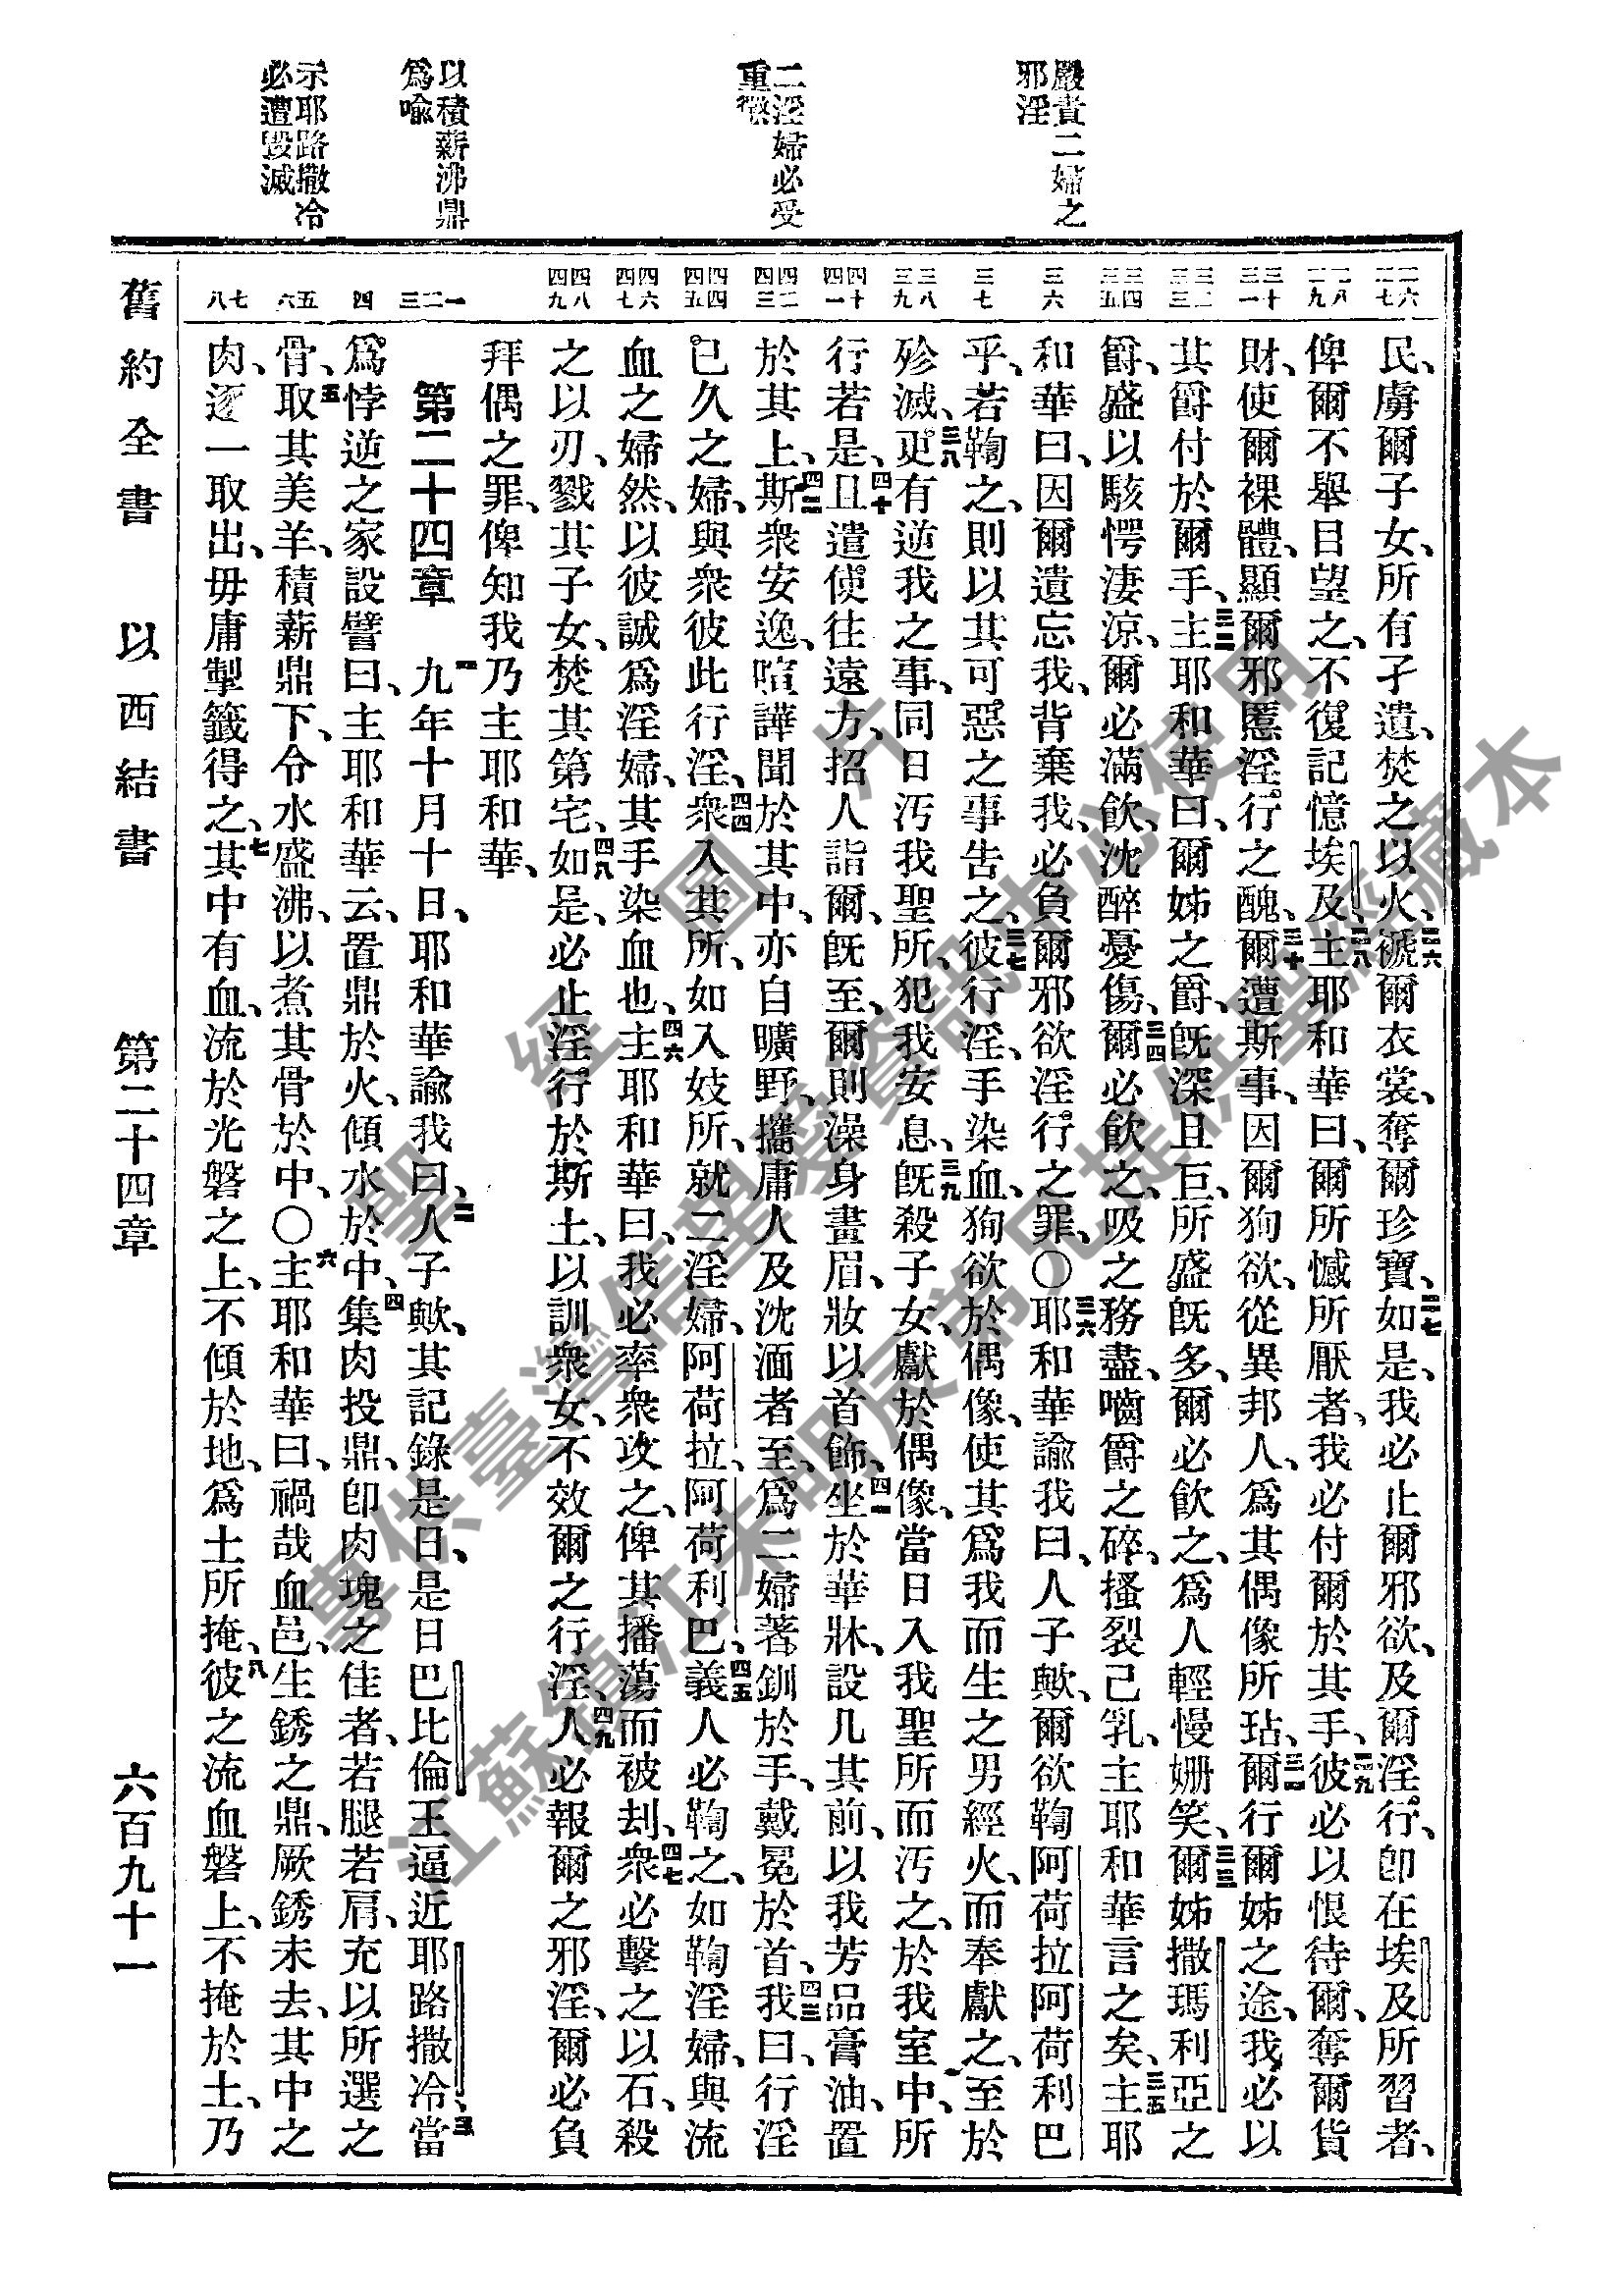 嚴責二婦之
邪淫
二淫婦必受
重懲
以積薪沸鼎
爲喩
示耶路撒冷
必遭毀滅
二六
二七
二八
二九
三十
三一
三二
三三
三四
三五
三六
三七
三八
三九
四十
四一
四二
四三
四四
四五
四六
四七
四八
四九
一
二
三
四
五
六
七
八
民、虜爾子女、所有孑遺、焚之以火、二六褫爾衣裳、奪爾珍寶、二七如是、我必止爾邪欲、及爾淫行、卽在埃及所習者、
俾爾不舉目望之、不復記憶埃及、二八主耶和華曰、爾所憾所厭者、我必付爾於其手、二九彼必以恨待爾、奪爾貨
財、使爾裸體、顯爾邪慝淫行之醜、三十爾遭斯事、因爾狥欲、從異邦人、爲其偶像所玷、三一爾行爾姊之途、我必以
其爵付於爾手、三二主耶和華曰、爾姊之爵、旣深且巨、所盛旣多、爾必飮之、爲人輕慢姍笑、三三爾姊撒瑪利亞之
爵、盛以駭愕淒涼、爾必滿飮、沈醉憂傷、三四爾必飮之、吸之務盡、嚙爵之碎、搔裂己乳、主耶和華言之矣、三五主耶
和華曰、因爾遺忘我、背棄我、必負爾邪欲淫行之罪、〇三六耶和華諭我曰、人子歟、爾欲鞫阿荷拉阿荷利巴
乎、若鞫之、則以其可惡之事告之、三七彼行淫、手染血、狥欲於偶像、使其爲我而生之男經火、而奉獻之、至於
殄滅、三八更有逆我之事、同日汚我聖所、犯我安息、三九旣殺子女、獻於偶像、當日入我聖所而汚之、於我室中、所
行若是、四十且遣使往遠方、招人詣爾、旣至、爾則澡身畫眉、妝以首飾、四一坐於華牀、設几其前、以我芳品膏油、置
於其上、四二斯衆安逸、喧譁聞於其中、亦自曠野、攜庸人及沈湎者至、爲二婦著釧於手、戴冕於首、四三我曰、行淫
已久之婦、與衆彼此行淫、四四衆入其所、如入妓所、就二淫婦、阿荷拉、阿荷利巴、四五義人必鞫之、如鞫淫婦、與流
血之婦然、以彼誠爲淫婦、其手染血也、四六主耶和華曰、我必率衆攻之、俾其播蕩而被刦、四七衆必擊之以石、殺
之以刃、戮其子女、焚其第宅、四八如是、必止淫行於斯土、以訓衆女、不效爾之行淫、四九人必報爾之邪淫、爾必負
拜偶之罪、俾知我乃主耶和華、
第二十四章　一九年十月十日、耶和華諭我曰、二人子歟、其記錄是日、是日巴比倫王逼近耶路撒冷、三當
爲悖逆之家設譬曰、主耶和華云、置鼎於火、傾水於中、四集肉投鼎、卽肉塊之佳者、若腿若肩、充以所選之
骨、五取其美羊、積薪鼎下、令水盛沸、以煮其骨於中、〇六主耶和華曰、禍哉血邑、生銹之鼎、厥銹未去、其中之
肉、逐一取出、毋庸掣籤得之、七其中有血、流於光磐之上、不傾於地、爲土所掩、八彼之流血磐上、不掩於土、乃
舊約全書　以西結書　第二十四章　六百九十一
聖經圖片
專供臺灣信望愛資訊中心使用
江蘇鎮江朱明辰弟兄提供聖經藏本